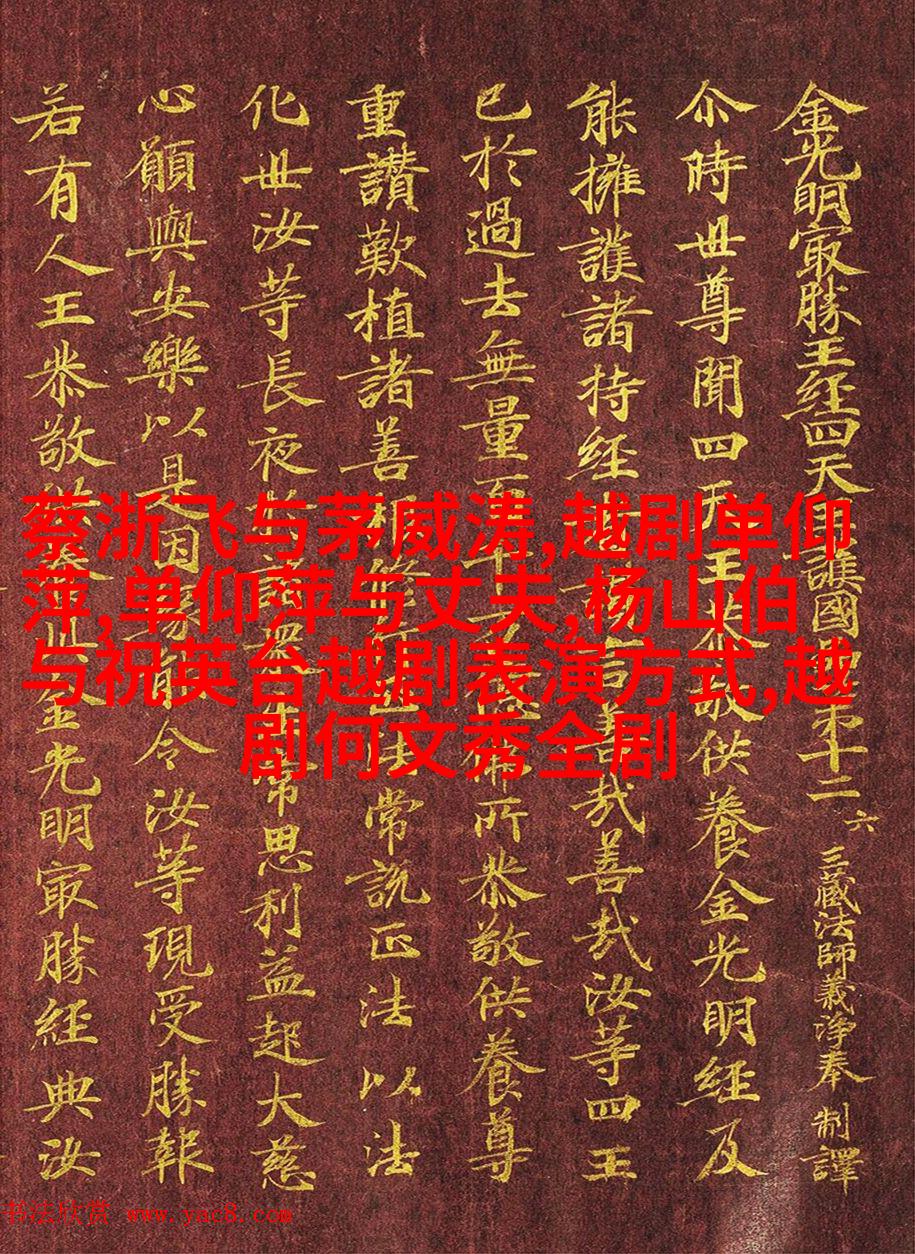 金光明冣勝王経四天王護國第十二 六 三藏法師義淨奉 制譯
尒時世尊聞四天王恭敬供養金光明経及
能擁護諸持経言善哉善哉汝等四王
已於過去無量百千佛所恭敬供養尊
重讃歎植諸善根修正法常說正法以法
化世汝等長夜諸衆常思利益起大慈
心願與安樂以是因令汝等現受勝報
若有人王恭敬供養此金光明冣勝経典汝
蔡浙飞与茅威涛,越剧单仰
萍,单仰萍与丈夫,杨山伯
与祝英台越剧表演方式,越
剧何文秀全剧
书法欣赏 www.yac8.com